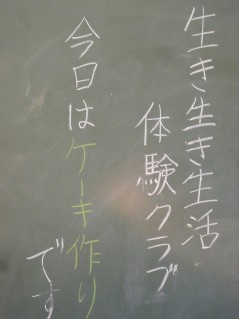 生き生き生活
体験クラブ
今日はケーキ作り
です